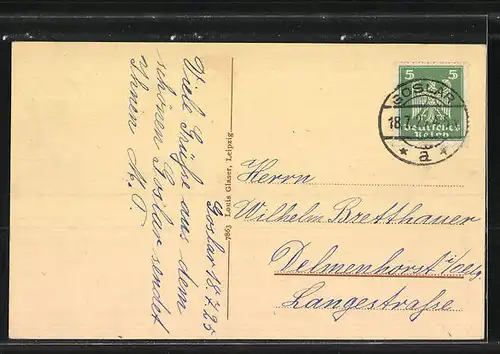 Goslar 18.7.25
Viele Grüße aus dem
schönen Goslar sendet
Ihnen A. T.
7863 Louis Glaser, Leipzig.
5 5
Deutsches
Reich
GOSLAR
18.7.
* a *
Herrn
Wilhelm Bretthauer
Delmenhorst i/Olbg.
Langestraße